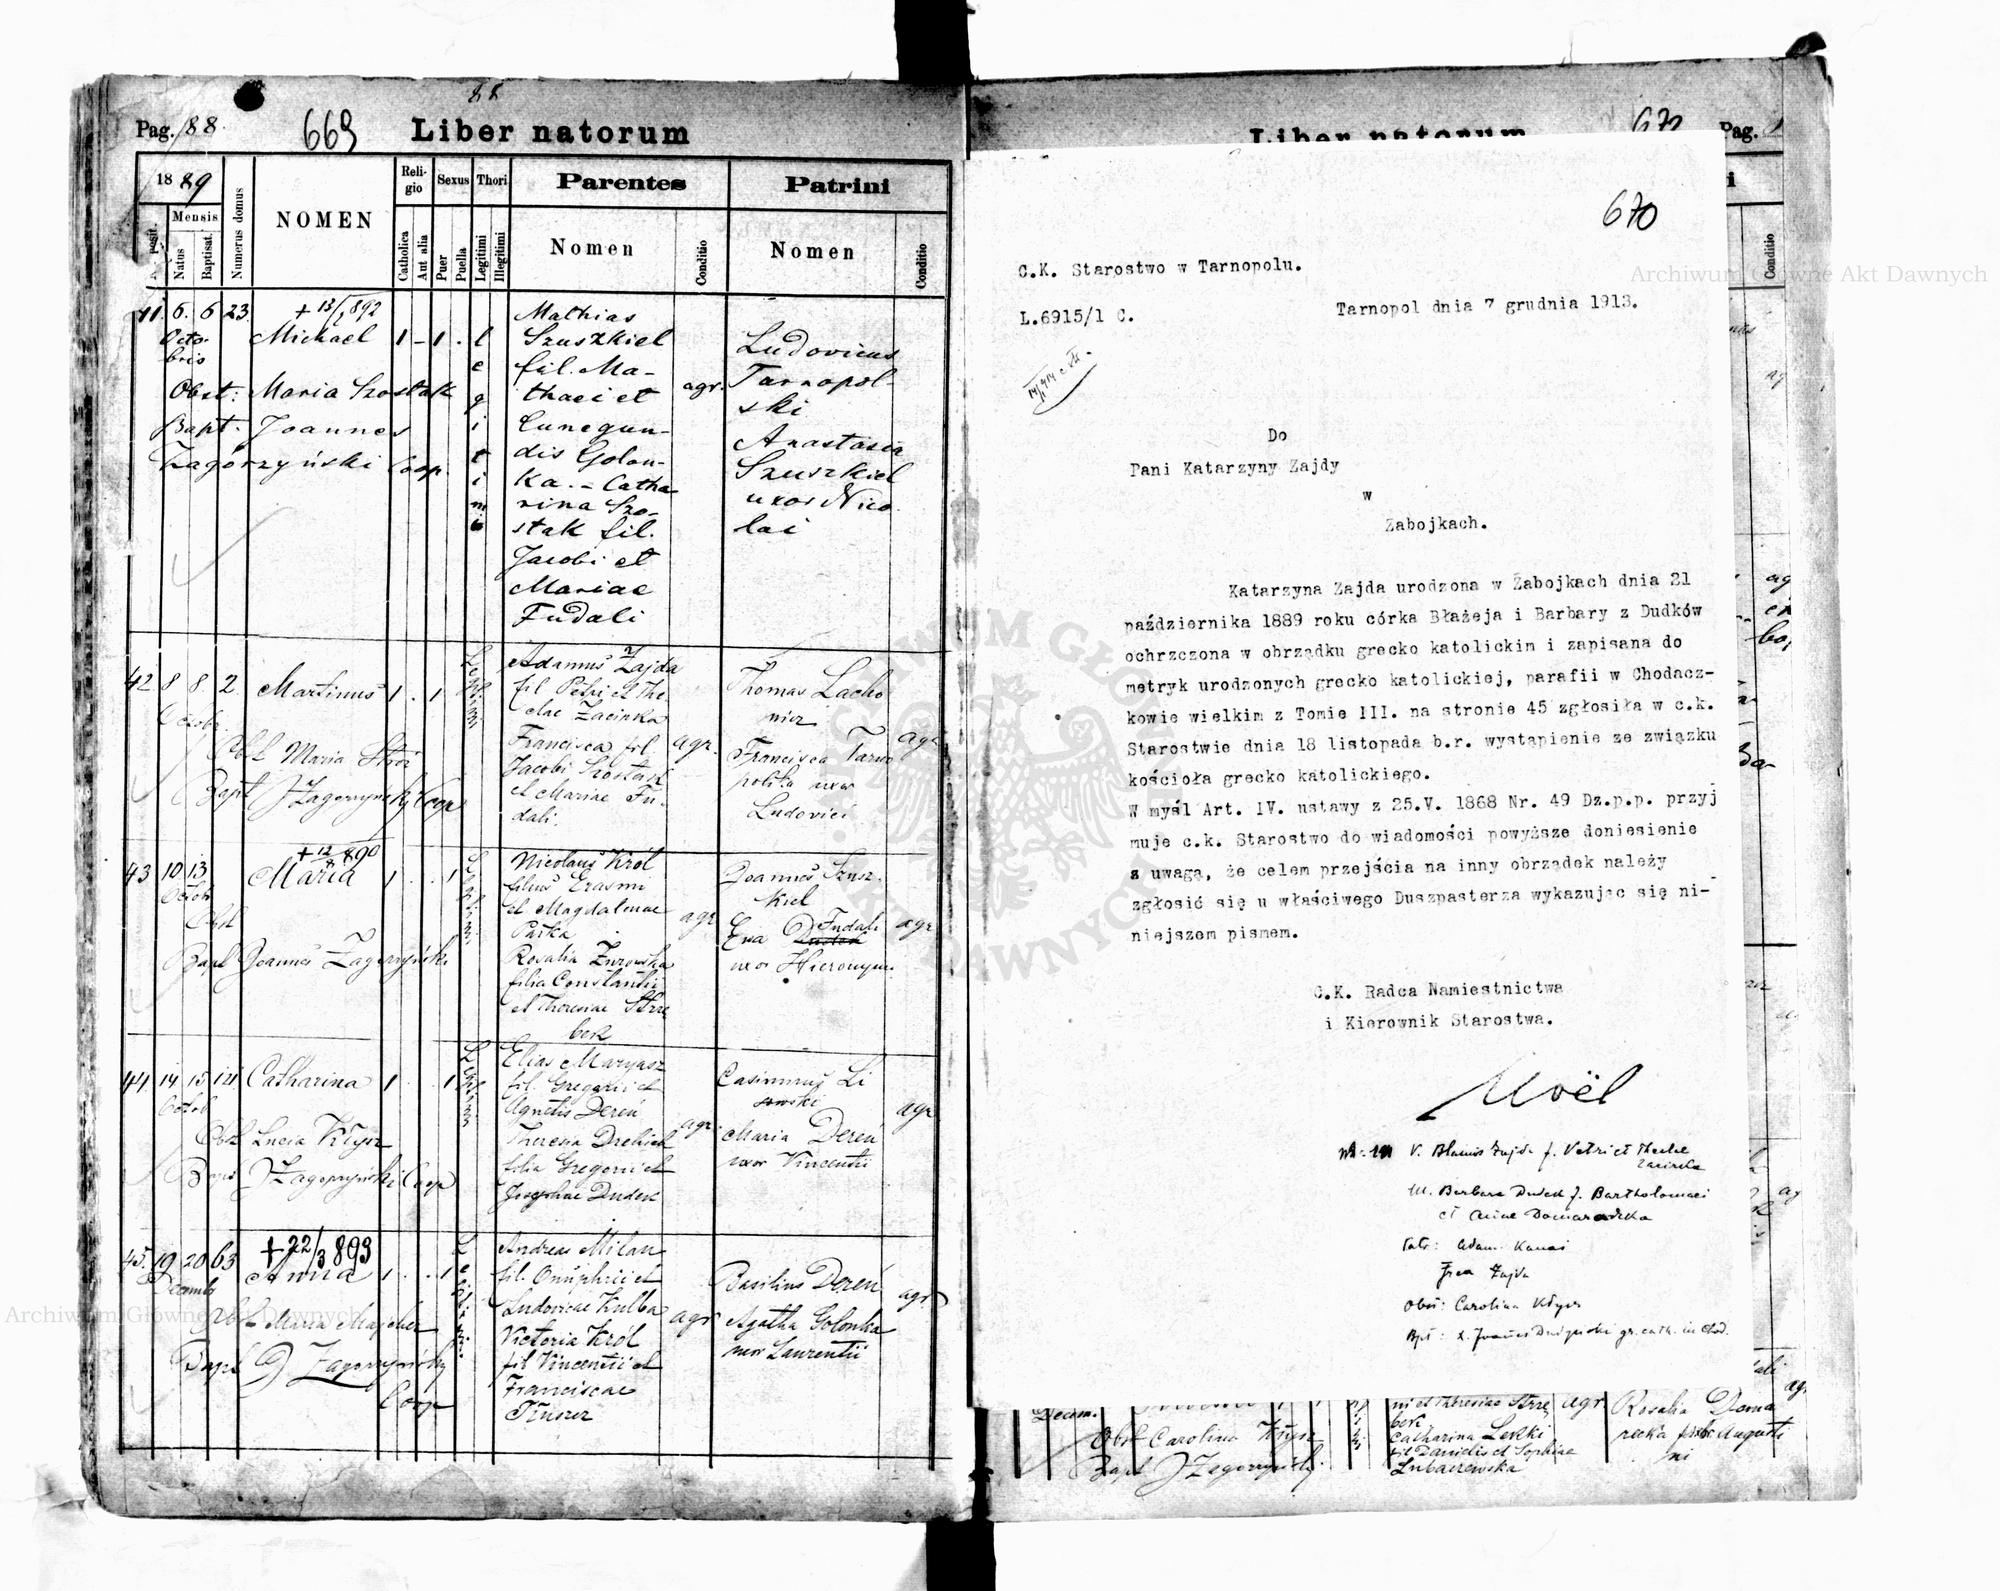 88
Pag. 88.
669
Liber natorum
1889
Mensis
Natus
Baptisat.
Numerus domus
NOMEN
Religio
Catholica
Aut alia
Sexus
Puer
Puella
Thori
Legitimi
Illegitimi
Parentes
Nomen
Conditio
Patrini
Nomen
Conditio
41 6. 6 23.
Octobris
+ 13/1 892
Michael 1 - 1 .
legitimi
Obst: Maria Szostak
Bapt: Joannes
Zagórzyński Coop.
Mathias
Szuszkiel
fil. Ma-
thaei et
Cunegun-
dis Golon-
ka. - Catha
rina Szo-
stak fil.
Jacobi et
Mariae
Fudali
agr.
Ludovicus
Tarnopol-
ski
Anastasia
Szuszkiel
uxor Nico
lai
42 8 8. 2.
Octobr.
Martinus 1 . 1
Obst Maria Stoi
Bapt J Zagorzynski Coop
Adamus Zajda
fil Petri et The
clae Zacinka
Francisca fil.
Jacobi Szostak
et Mariae Fu-
dali.
agr.
Thomas Lacho
wicz
Francisca Tarno
polska uxor
Ludovici
agr
43 10 13
Octob
+ 12/8 890
Maria 1 . . 1
Obst
Bapt Joannes Zagorzyński
Nicolaus Król
filius Erasmi
et Magdalenae
Parka
Rosalia Zurowska
filia Constantii
et Theresiae Strze
bek
agr
Joannes Szusz-
kiel
Eva Dudek Fudali
uxor Hieronymi
agr
44 14 15 121
Octob
Catharina 1 . . 1
Obst Lucia Kłysz
Bapt J Zagorzyński Coop
Elias Maryasz
fil. Gregorii et
Agnetis Dereń
Theresia Drebich
filia Gregorii et
Josephae Dudek
agr.
Casimirus Li
sowski
Maria Dereń
uxor Vincentii
agr
45. 19 20 63
Decemb
+ 22/3 893
Anna 1 . . 1
Obst Maria Majcher
Bapt J Zagorzyński
Coop
Andreas Milan
fil. Onuphrii et
Ludovicae Kulba
Victoria Król
fil Vincentii et
Franciscae
agr
Basilius Dereń
Agatha Golonka
uxor Laurentii
agr
Liber natorum
672
Pag.
Conditio
670
C.K. Starostwo w Tarnopolu.
L.6915/1 C.
Tarnopol dnia 7 grudnia 1913.
Do
Pani Katarzyny Zajdy
w
Zabojkach.
Katarzyna Zajda urodzona w Zabojkach dnia 21
października 1889 roku córka Błażeja i Barbary z Dudków
ochrzczona w obrządku grecko katolickim i zapisana do
metryk urodzonych grecko katolickiej, parafii w Chodacz-
kowie wielkim z Tomie III. na stronie 45 zgłosiła w c.k.
Starostwie dnia 18 listopada b.r. wystąpienie ze związku
kościoła grecko katolickiego.
W myśl Art. IV. ustawy z 25.V. 1868 Nr. 49 Dz.p.p. przyj
muje c.k. Starostwo do wiadomości powyższe doniesienie
z uwagą, że celem przejścia na inny obrządek należy
zgłosić się u właściwego Duszpasterza wykazując się ni-
niejszem pismem.
C.K. Radca Namiestnictwa
i Kierownik Starostwa.
Moël
V. Blasius Zajda f. Petri et Theclae
Zacinka
M. Barbara Dudek f. Bartholomaei
et Annae Domaradzka
Patr: Adam Kanas
Zajda
Obst: Carolina Kłysz
Bpt: X. Joannes gr. cath. in Chod.
Decem.
Obst Carolina Kłysz
Bapt J Zagorzyński
ni et Theresiae Strzę
bek
Catharina Leszki
fil Danielis et Sophiae
Lubaczewska
agr
Rosalia Doma
recka uxor Augusti
ni
agr
Archiwum Główne Akt Dawnych
Archiwum Główne Akt Dawnych
ARCHIWUM GŁÓWNE AKT DAWNYCH